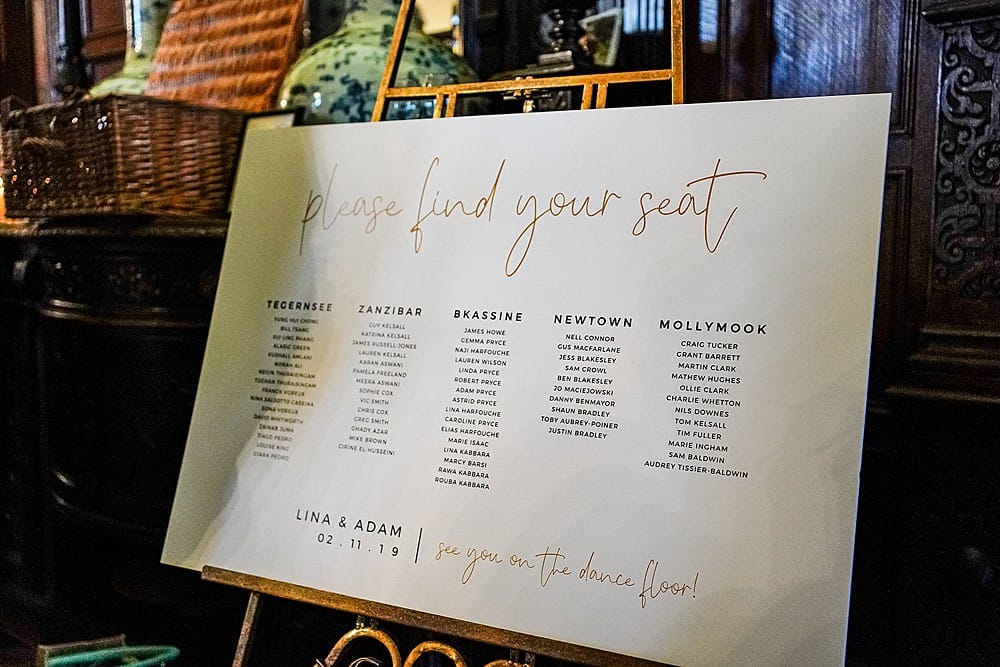 please find your seat
TEGERNSEE
YUNG HUI CHONG
BILL TSANG
SUI LING PHANG
ALARIC GREEN
KUSHALL AMLANI
NORAH ALI
NEGIN THURAISINGAM
TUSHAN THURAISINGAM
FRANCK VOREUX
NINA SALSOTTO CASSINA
SONA VOREUX
DAVID WHITWORTH
ZAINAB JUMA
TIAGO PEDRO
LOUISE KING
CIARA PEDRO
ZANZIBAR
GUY KELSALL
KATRINA KELSALL
JAMES RUSSELL-JONES
LAUREN KELSALL
KARAN ASWANI
PAMELA FREELAND
MEERA ASWANI
SOPHIE COX
VIC SMITH
CHRIS COX
GREG SMITH
GHADY AZAR
MIKE BROWN
CIRINE EL-HUSSEINI
BKASSINE
JAMES HOWE
GEMMA PRYCE
NAJI HARFOUCHE
LAUREN WILSON
LINDA PRYCE
ROBERT PRYCE
ADAM PRYCE
ASTRID PRYCE
LINA HARFOUCHE
CAROLINE PRYCE
ELIAS HARFOUCHE
MARIE ISAAC
LINA KABBARA
MARCY BARSI
RAWA KABBARA
ROUBA KABBARA
NEWTOWN
NELL CONNOR
GUS MACFARLANE
JESS BLAKESLEY
SAM CROWL
BEN BLAKESLEY
JO MACIEJOWSKI
DANNY BENMAYOR
SHAUN BRADLEY
TOBY AUBREY-POINER
JUSTIN BRADLEY
MOLLYMOOK
CRAIG TUCKER
GRANT BARRETT
MARTIN CLARK
MATHEW HUGHES
OLLIE CLARK
CHARLIE WHETTON
NILS DOWNES
TOM KELSALL
TIM FULLER
MARIE INGHAM
SAM BALDWIN
AUDREY TISSIER-BALDWIN
LINA & ADAM
02 . 11 . 19
see you on the dance floor!